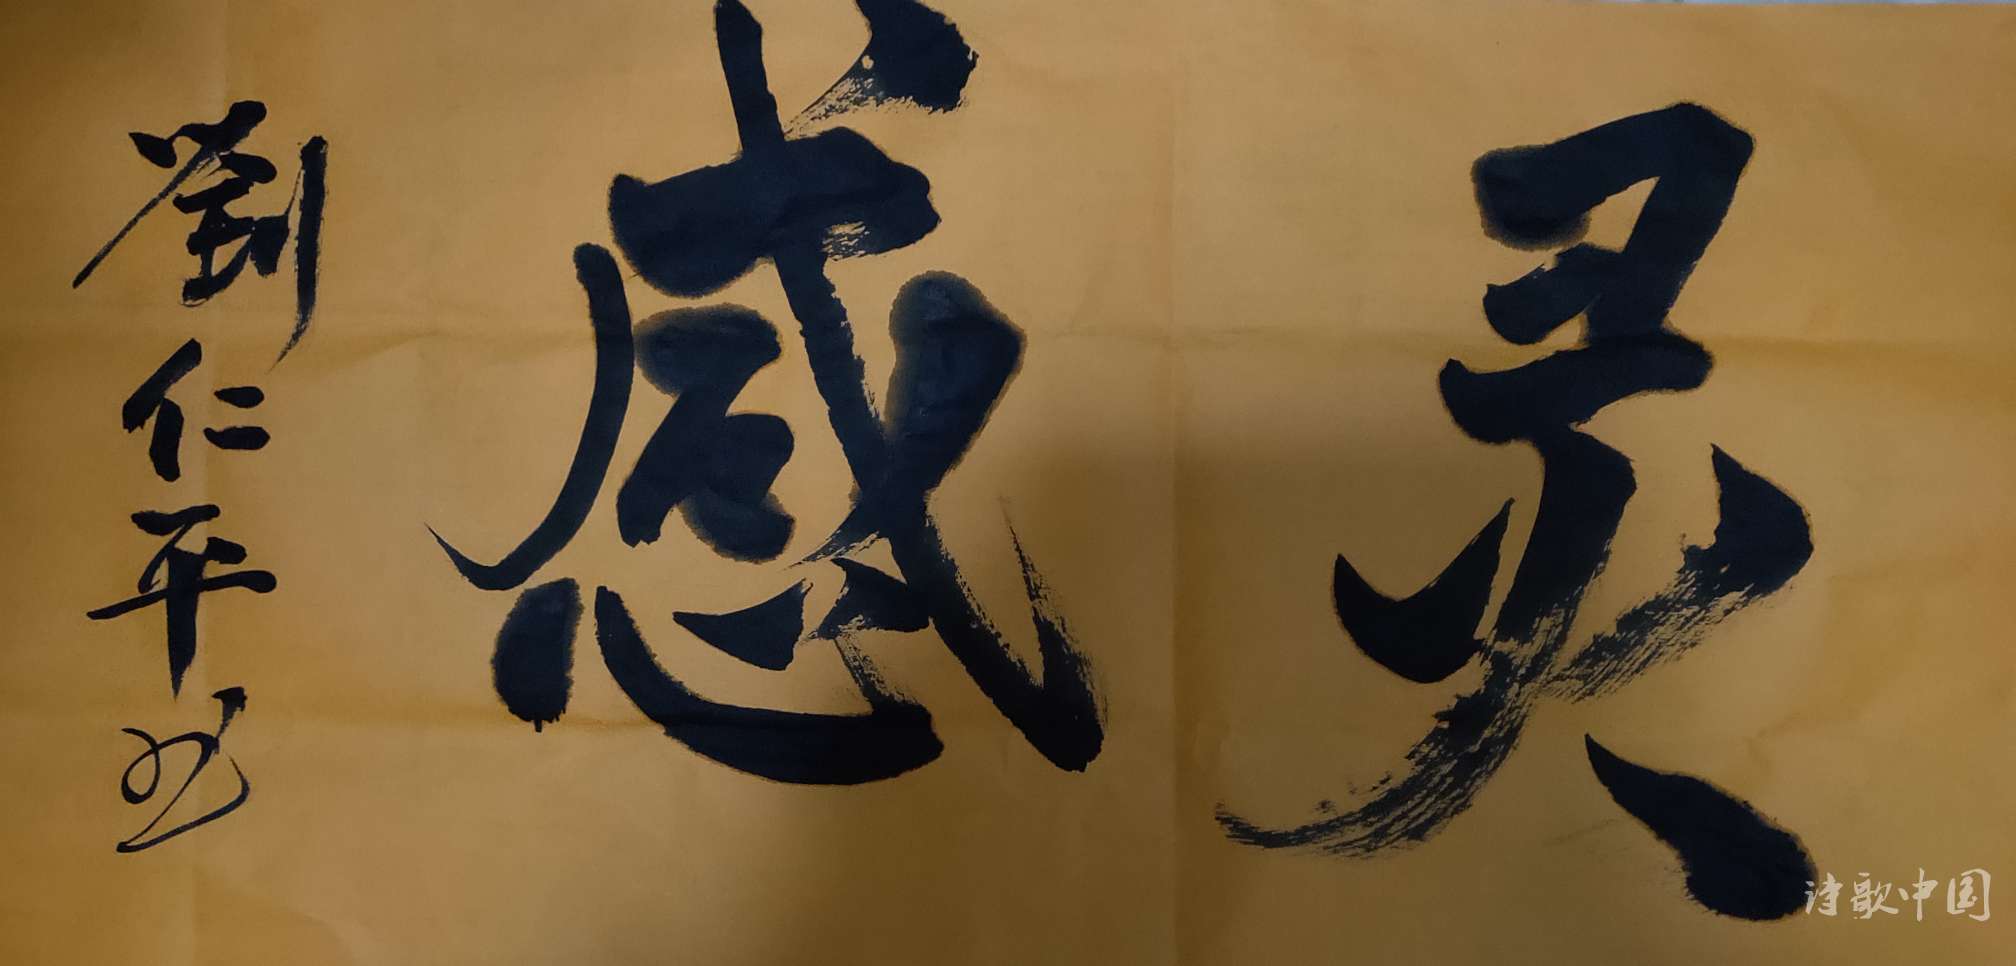 灵感
劉仁平书
诗歌中国